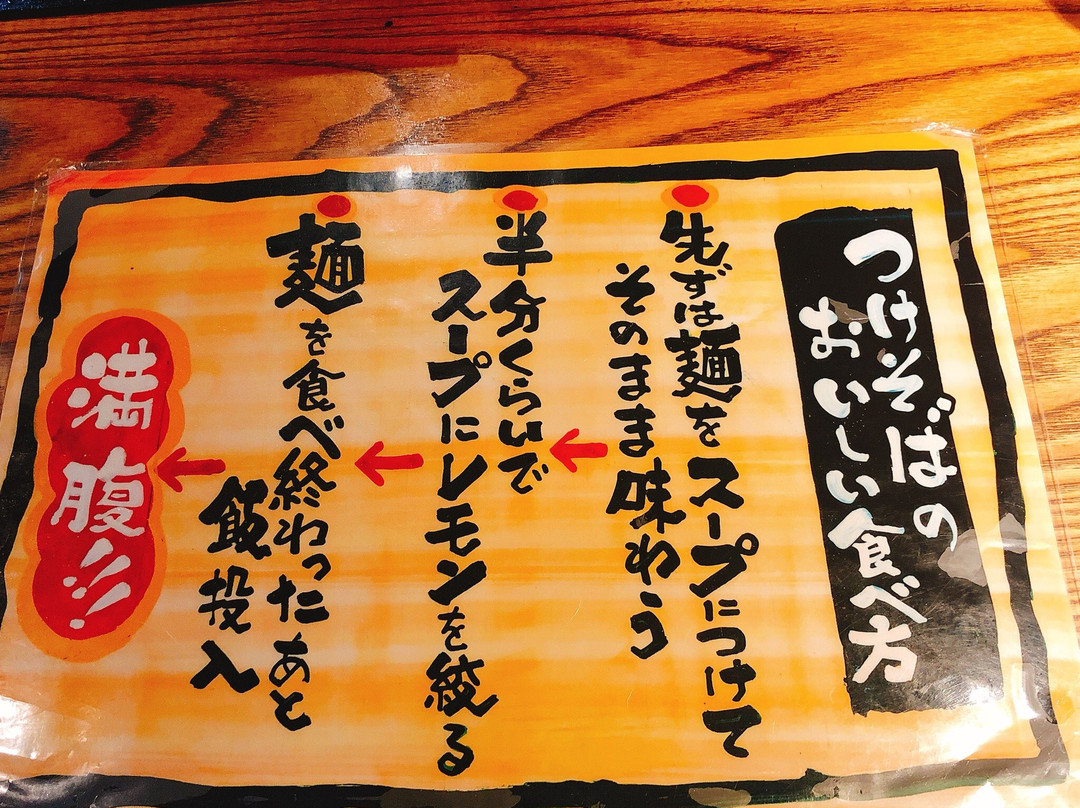 つけそばの
おいしい食べ方
先ずは麺をスープにつけて
そのまま味わう
半分くらいで
スープにレモンを絞る
麺を食べ終わったあと
飯投入
満腹!!!